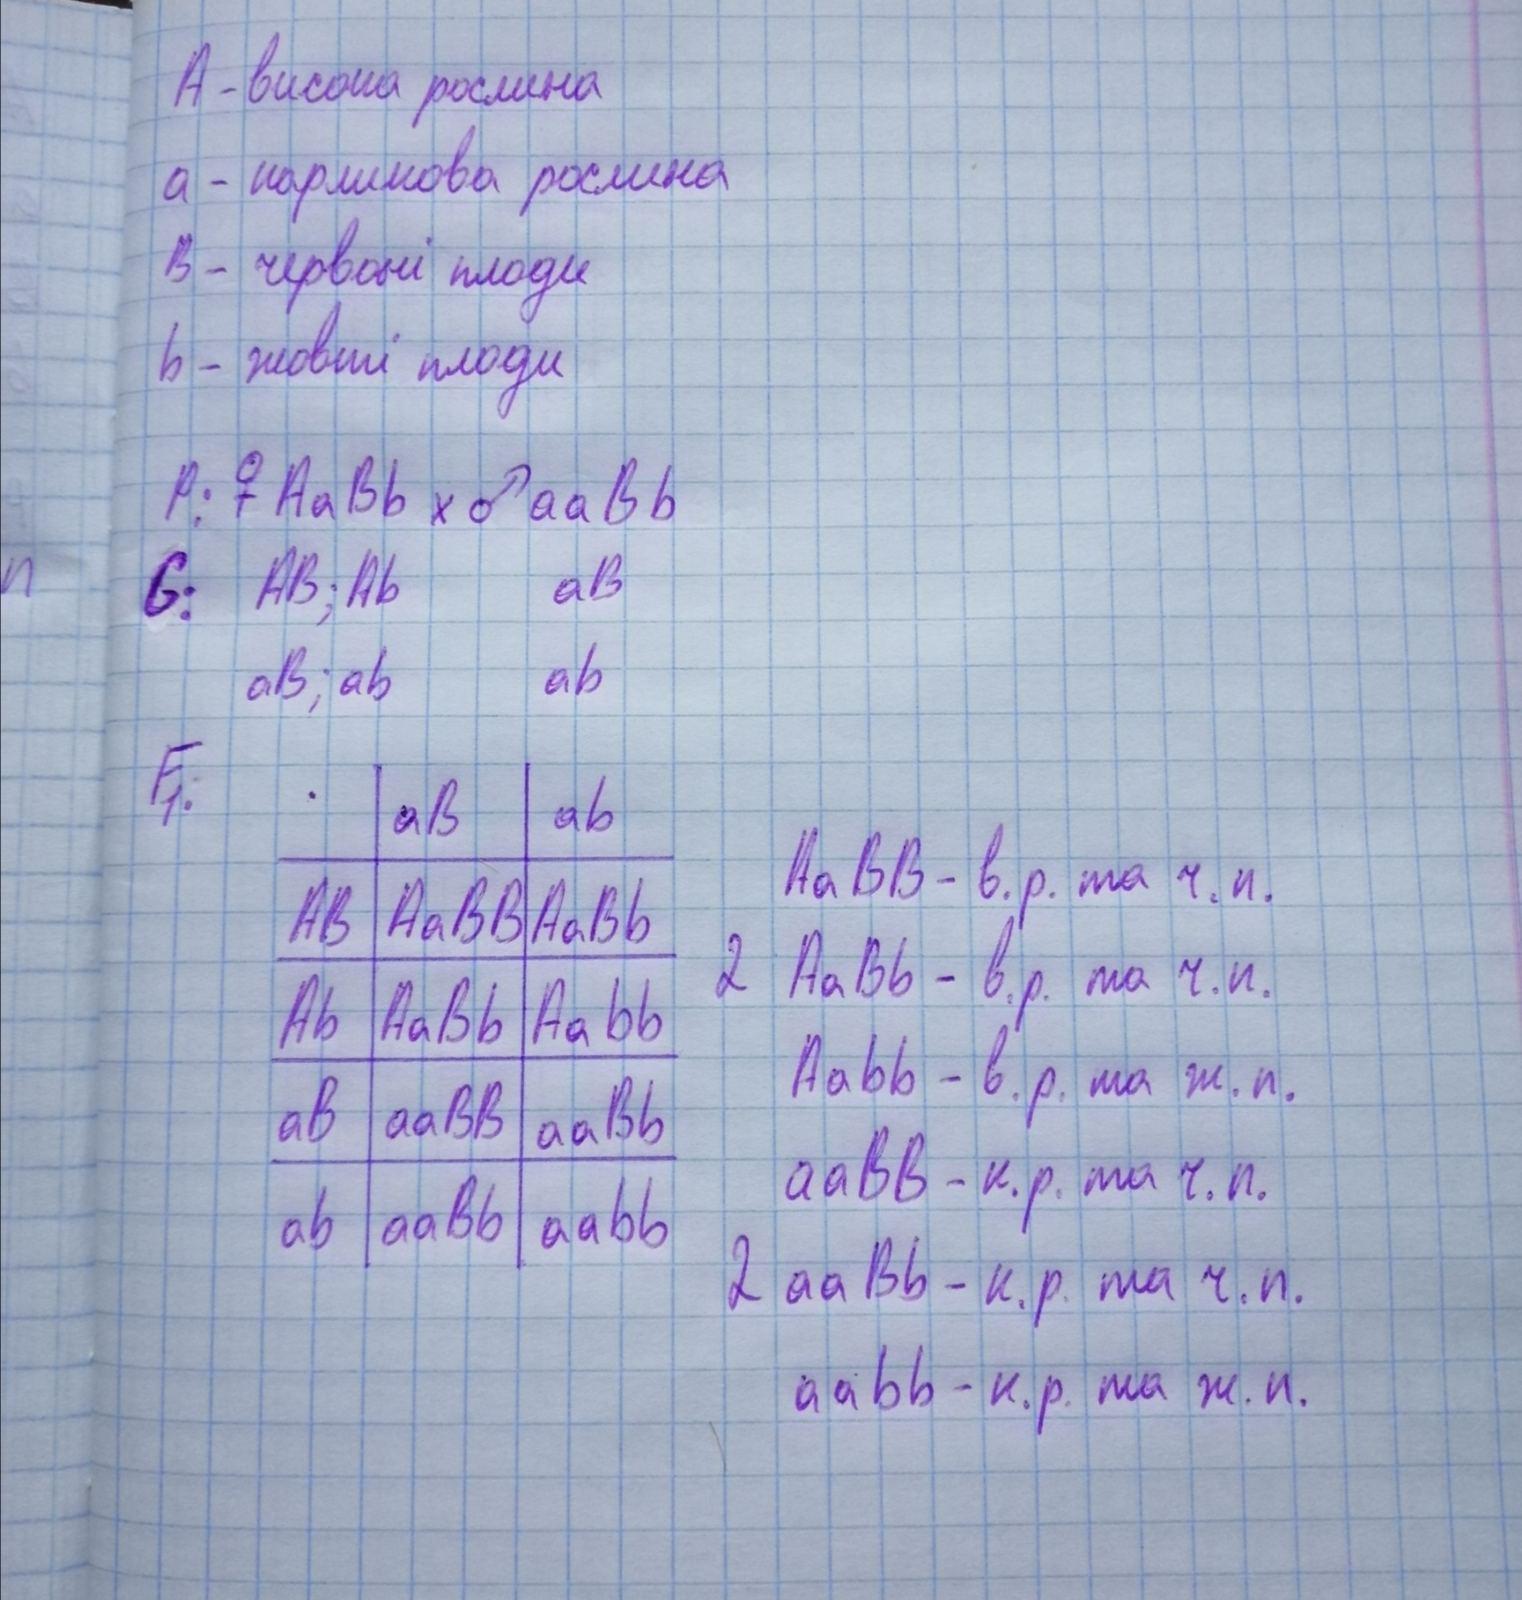 А - висока рослина
а - карликова рослина
В - червоні плоди
b - жовті плоди
P: ♀ AaBb x ♂ aaBb
G: AB; Ab aB
aB; ab ab
F1:
aB ab
AB AaBB AaBb
Ab AaBb Aabb
aB aaBB aaBb
ab aaBb aabb
AaBB - в.р. та ч.п.
2 AaBb - в.р. та ч.п.
Aabb - в.р. та ж.п.
aaBB - к.р. та ч.п.
2 aaBb - к.р. та ч.п.
aabb - к.р. та ж.п.
п